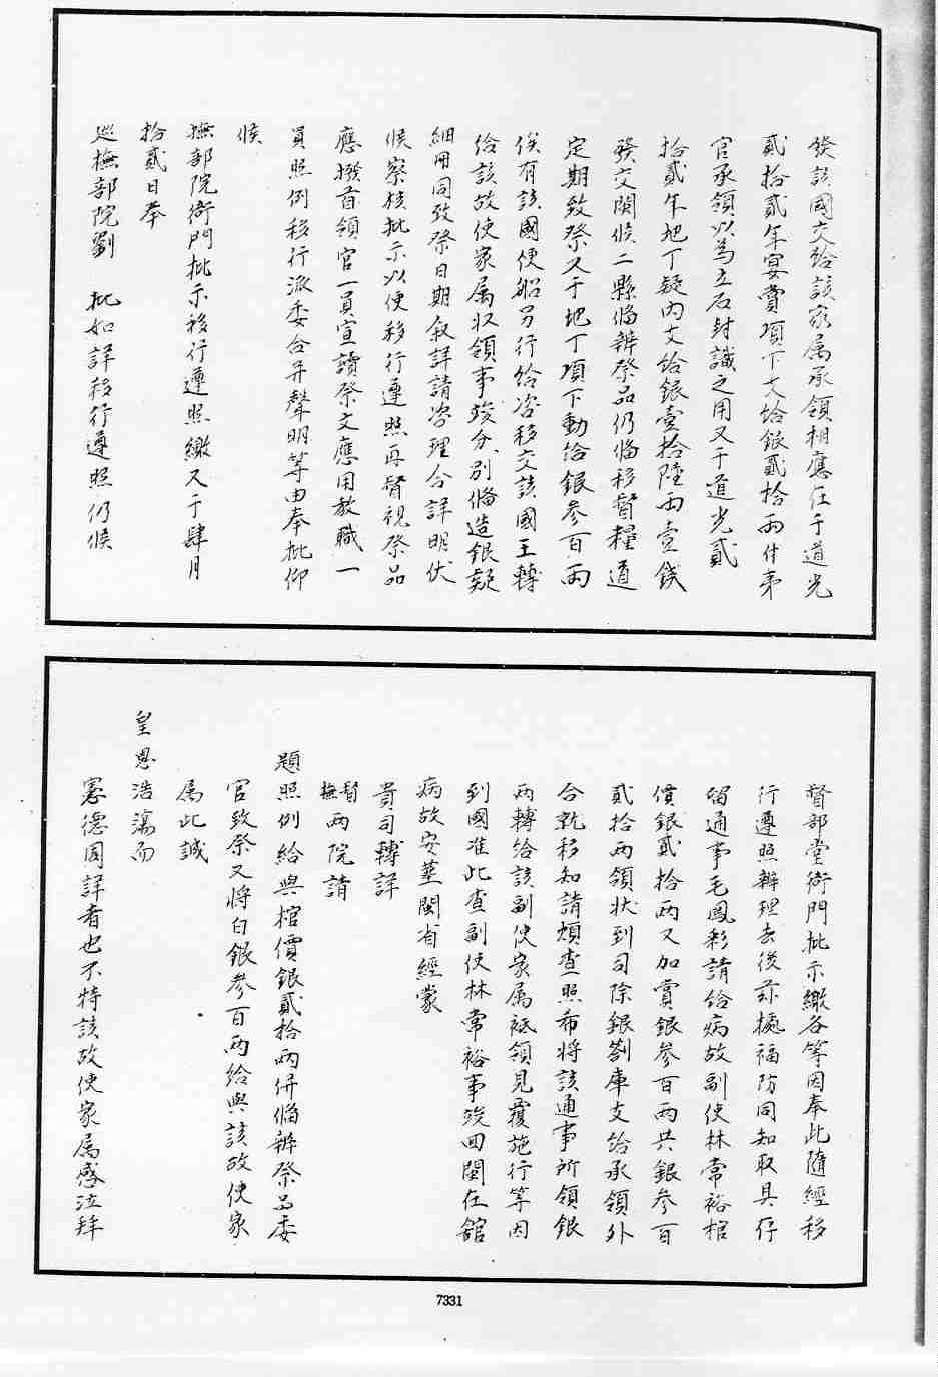 發該國交給該家属承領相應在于道光
貳拾貳年宴賞項下支給銀貳拾兩付弟
官承領以為立石封識之用又于道光貳
拾貳年地丁疑内支給銀壹拾陸兩壹錢
發交閩候二縣俻辦祭品仍俻移督糧道
定期致祭又于地丁項下動給銀参百兩
俟有該國便船另行給咨移交該國王轉
給該故使家属収領事竣分別俻造銀疑
細冊同致祭日期叙詳請咨理合詳明伏
候察核批示以便移行遵照再督視祭品
應撥首領官一員宣讀祭文應用教職一
員照例移行派委合并聲明等由奉批仰
候
撫部院衙門批示移行遵照繳又于肆月
拾貳日奉
巡撫部院劉　批如詳移行遵照仍候
督部堂衙門批示繳各等因奉此隨經移
行遵照辦理去後茲據福防同知取具存
留通事毛鳳彩請給病故副使林常裕棺
價銀貳拾兩又加賞銀参百兩共銀参百
貳拾兩領状到司除銀劄庫支給承領外
合就移知請煩查照希將該通事所領銀
兩轉給該副使家属祗領見覆施行等因
到國准此查副使林常裕事竣回閩在舘
病故安塟閩省經蒙
貴司轉詳
督撫兩院請
題照例給與棺價銀貳拾兩併俻辦祭品委
官致祭又將白銀参百兩給與該故使家
属此誠
皇恩浩蕩而
憲德周詳者也不特該故使家属感泣拜
7331